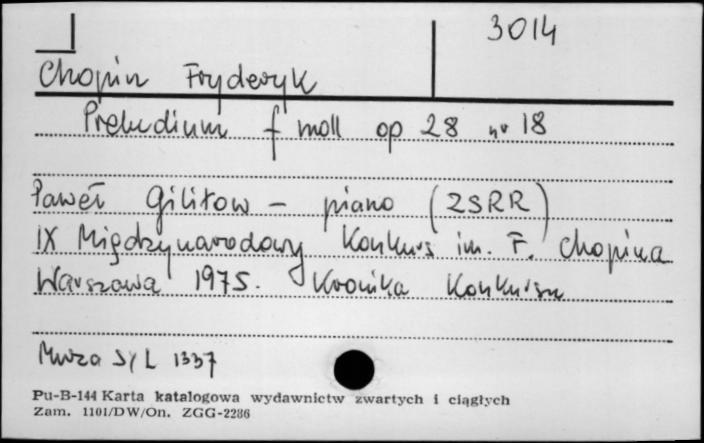 3014
Chopin Fryderyk
Preludium f moll op 28 nr 18
Paweł Giliłow - piano (ZSRR)
IX Międzynarodowy Konkurs im. F. Chopina
Warszawa 1975. Kronika Konkursu
Muza SXL 1337
Pu-B-144 Karta katalogowa wydawnictw zwartych i ciągłych
Zam. 1101/DW/On. ZGG-2286